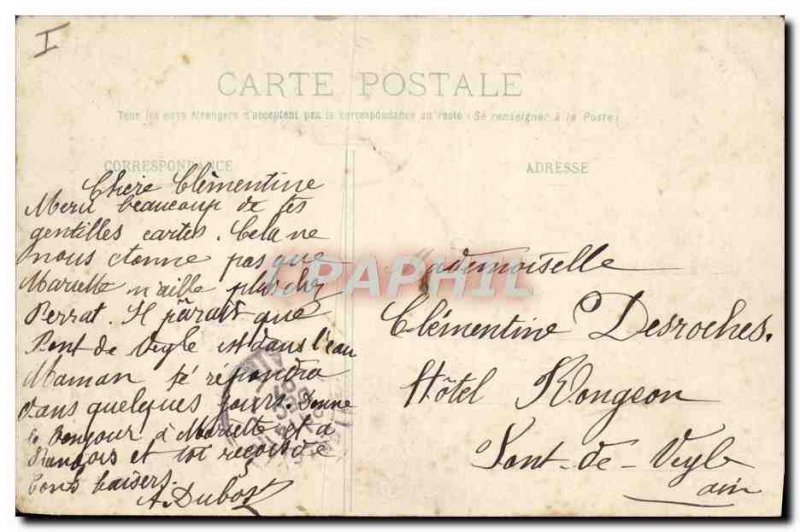 I
CARTE POSTALE
Tous les pays étrangers n'acceptent pas la correspondance au recto (Se renseigner à la Poste)
CORRESPONDANCE
Chère Clémentine
Merci beaucoup de tes
gentilles cartes. Cela ne
nous etonne pas que
Mariette n'aille plus chez
Perrat. Il parait que
Pont de Veyle est dans l'eau
Maman te répondra
dans quelques jours. Donne
le bonjour à Mariette et à
François et toi reçois de
bons baisers.
A. Dubost
ADRESSE
Mademoiselle
Clémentine Desroches.
Hôtel
Pont-de-Veyle
ain
CPAPHIL